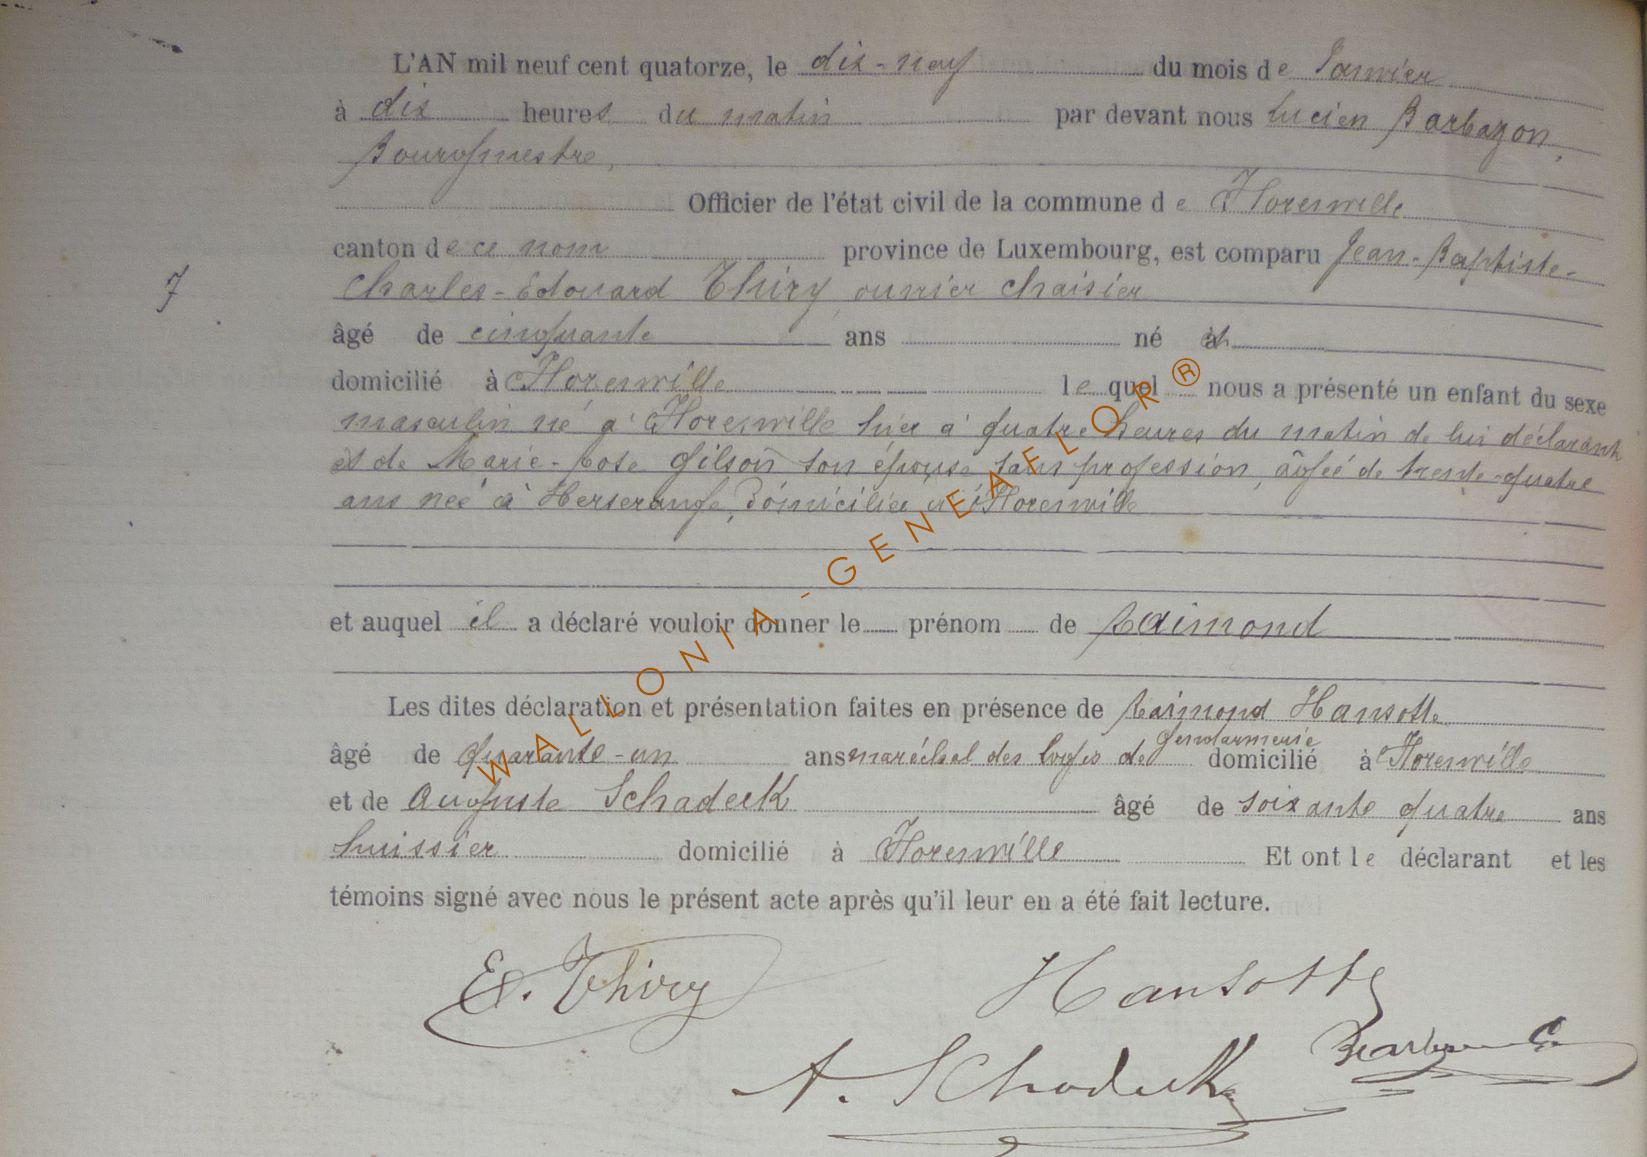 L'AN mil neuf cent quatorze, le dix-neuf du mois de Janvier
à dix heures du matin par devant nous Lucien Barbazon,
Bourgmestre,
Officier de l'état civil de la commune de Florenville
canton de ce nom province de Luxembourg, est comparu Jean-Baptiste-
7
Charles-Edouard Thiry, ouvrier chaisier
âgé de cinquante ans né et
domicilié à Florenville lequel nous a présenté un enfant du sexe
masculin né à Florenville hier à quatre heures du matin de lui déclarant
et de Marie-Rose Gilson son épouse sans profession, âgée de trente-quatre
ans née à Herserange, domiciliée à Florenville
et auquel il a déclaré vouloir donner le prénom de Raimond
Les dites déclaration et présentation faites en présence de Raimond Hansotte
âgé de quarante-un ans maréchal des logis de gendarmerie domicilié à Florenville
et de Auguste Schadeck âgé de soixante quatre ans
huissier domicilié à Florenville Et ont le déclarant et les
témoins signé avec nous le présent acte après qu'il leur en a été fait lecture.
Ed. Thiry Hansotte
A. Schadeck
WALLONIA-GENEAFLOR®